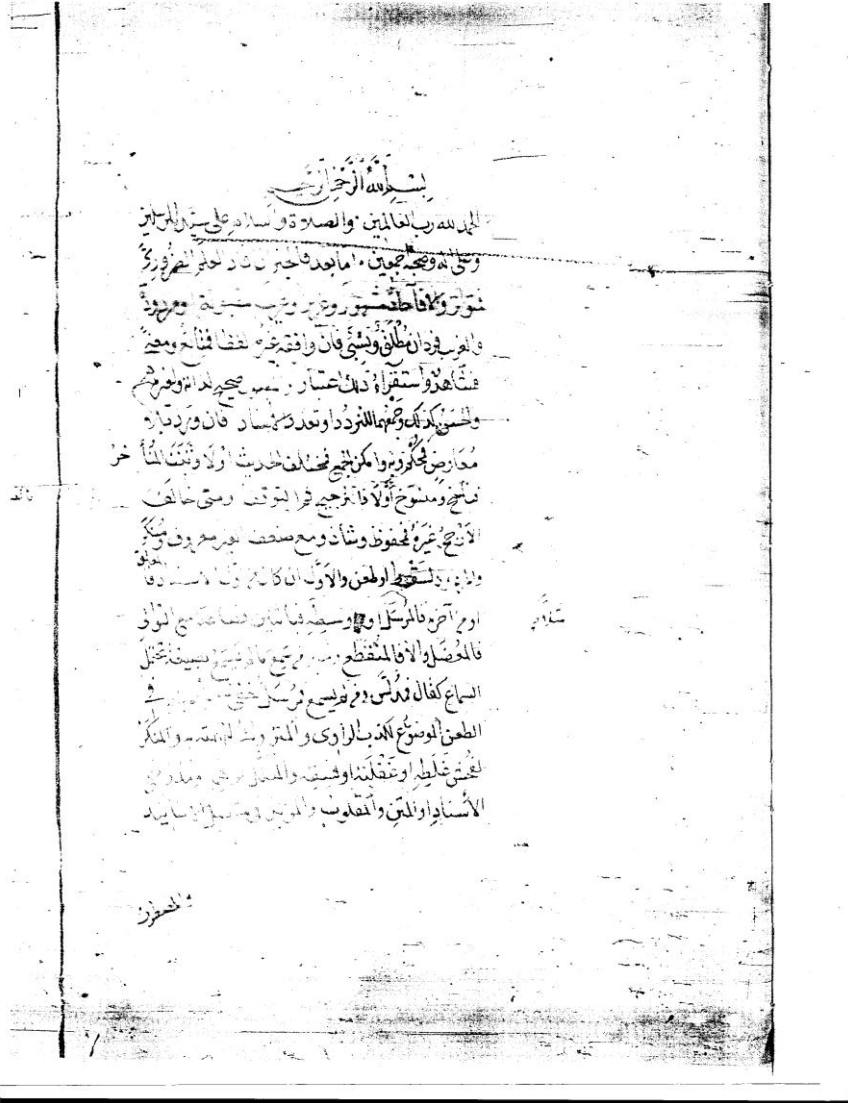 بسم الله الرحمن الرحيم
الحمد لله رب العالمين والصلاة والسلام على سيد المرسلين
وعلى اله وصحبه اجمعين اما بعد فالخبر ان افاد العلم الضروري
فمتواتر والا فآحاد مشهور وعزيز وغريب مقبولة او مردودة
والغريب فرد ان مطلق ونسبي فان وافقه غيره لفظا فمتابع ومعنى
فشاهد واستقراء ذلك اعتبار صحيح لذاته ولغيره
والحسن كذلك وجمعهما للتردد او تعدد الاسناد فان ورد بلا
معارض فمحكم وبه وامكن الجمع فمختلف الحديث او لا وثبت المتأخر
فناسخ ومنسوخ أو لا فالترجيح ثم التوقف ومتى خالف
الأرجح غيره فمحفوظ وشاذ ومع ضعف الغير معروف ومنكر
والمردود لسقط او لطعن والأول ان كان من أول الاسناد فالمعلق
او من آخره فالمرسل او وسطه فباثنين فصاعدا مع التوالي
فالمعضل والا فالمنقطع بصيغة تحتمل
السماع كقال فمدلس ومن لم يسمع فمرسل خفي في
الطعن الموضوع لكذب الراوي والمتروك لتهمته والمنكر
لفحش غلطه او غفلته او فسقه والمعلل
الأسناد او المتن والمقلوب والمزيد في متصل الاسانيد
والمضطرب